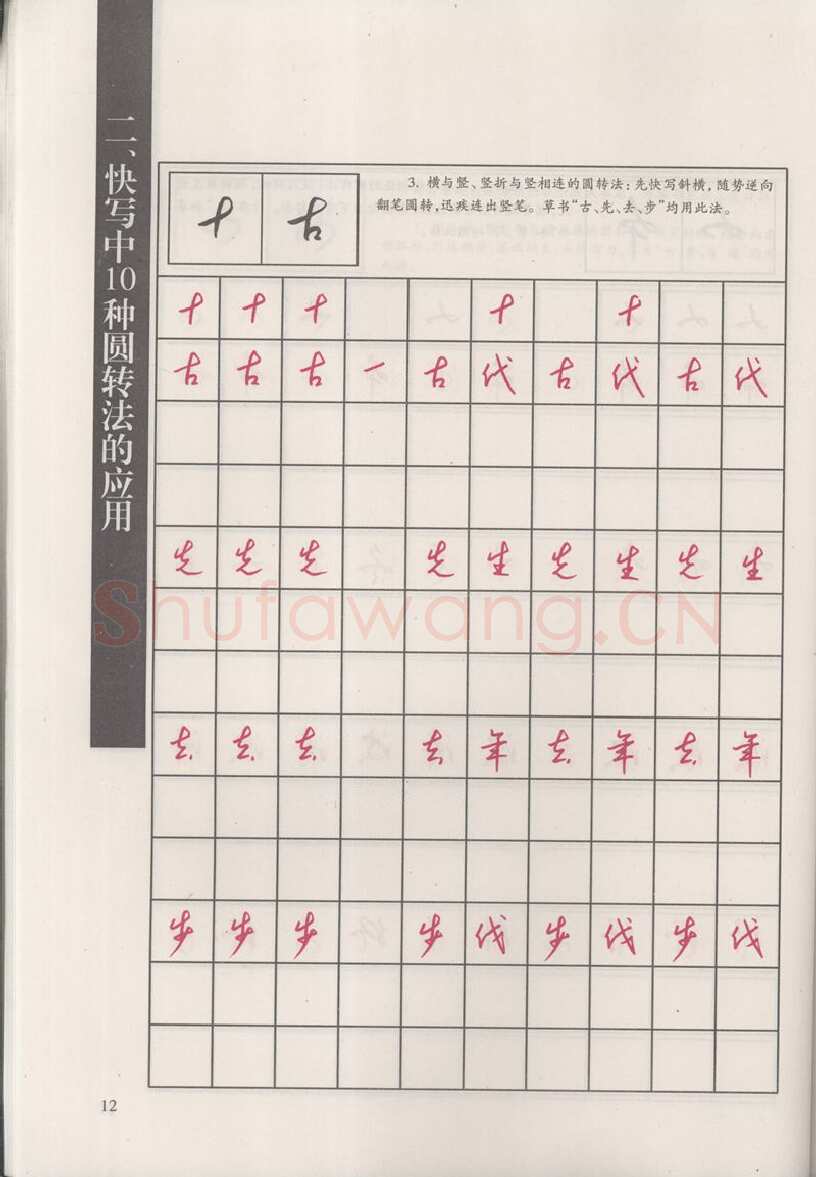 二、快写中10种圆转法的应用
十 古
3. 横与竖、竖折与竖相连的圆转法：先快写斜横，随势逆向
翻笔圆转，迅疾连出竖笔。草书“古、先、去、步”均用此法。
十 十 十 十 十
古 古 古 一 古 代 古 代 古 代
先 先 先 先 生 先 生 先 生
Shufawang.CN
去 去 去 去 年 去 年 去 年
步 步 步 步 伐 步 伐 步 伐
12